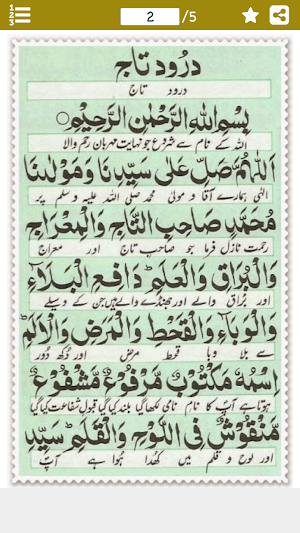 1
2
3
2 /5
درود تاج
درود تاج
بِسْمِ اللّٰهِ الرَّحْمٰنِ الرَّحِيْمِ
اللہ کے نام سے شروع جو نہایت مہربان رحم والا
اَللّٰهُمَّ صَلِّ عَلٰى سَيِّدِنَا وَمَوْلٰينَا
الٰہی ہمارے آقا و مولیٰ محمد صلی اللہ علیہ وسلم پر
مُحَمَّدٍ صَاحِبِ التَّاجِ وَالْمِعْرَاجِ
رحمت نازل فرما جو صاحب تاج اور معراج
وَالْبُرَاقِ وَالْعَلَمِ ؕ دَافِعِ الْبَلَآءِ
اور براق والے اور جھنڈے والے ہیں جن کے وسیلے
وَالْوَبَآءِ وَالْقَحْطِ وَالْمَرَضِ وَالْاَلَمِ ؕ
سے بلا وبا قحط مرض اور دکھ دور
اِسْمُهٗ مَكْتُوْبٌ مَّرْفُوْعٌ مَّشْفُوْعٌ
ہوتا ہے آپؐ کا نام نامی لکھا گیا بلند کیا گیا قبول شفاعت کیا گیا
مَّنْقُوْشٌ فِى اللَّوْحِ وَالْقَلَمِ ؕ سَيِّدِ
اور لوح و قلم میں کھدا ہوا ہے آپؐ